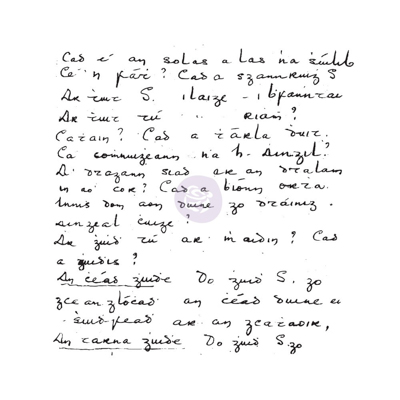 Cad é an solas a las na súilib
Cé'n fáṫ? Cad a scannruiġ S
Ar ṫuit S. i laige - i bfanntai
Ar ṫuit tú riaṁ?
Caṫain? Cad a ṫárla duit.
Ca coṁnuiġeann na h-aingil?
A' dtagann siad ar an dtalaṁ
in aċ cor? Cad a bíonn orra
Innis dom aon duine go dtáinig.
aingeal ċuige?
Ar ġuiḋ tú ar maidin? Cad
a ġuidis?
An céad ġuiḋe Do ġuiḋ S. go
gceanglócad an céad duine a
suiḋfead ar an gcaṫaoir,
An tarna ġuiḋe Do ġuiḋ S. go